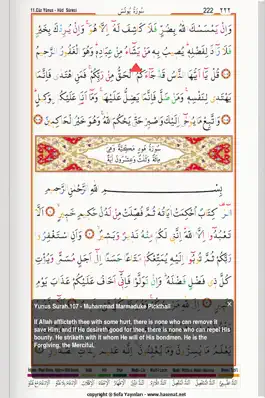 11.Cüz Yûnus - Hûd Sûresi
سُورَةُ يُونُسَ
222 ٢٢٢
وَاِنْ يَمْسَسْكَ اللّٰهُ بِضُرٍّ فَلَا كَاشِفَ لَهُٓ اِلَّا هُوَۚ وَاِنْ يُرِدْكَ بِخَيْرٍ
فَلَا رَٓادَّ لِفَضْلِهٖۜ يُصٖيبُ بِهٖ مَنْ يَشَٓاءُ مِنْ عِبَادِهٖۜ وَهُوَ الْغَفُورُ الرَّحٖيمُ
قُلْ يَٓا اَيُّهَا النَّاسُ قَدْ جَٓاءَكُمُ الْحَقُّ مِنْ رَبِّكُمْۚ فَمَنِ اهْتَدٰى فَاِنَّمَا
يَهْتَدٖي لِنَفْسِهٖۚ وَمَنْ ضَلَّ فَاِنَّمَا يَضِلُّ عَلَيْهَاۚ وَمَٓا اَنَا عَلَيْكُمْ بِوَكٖيلٍ
وَاتَّبِعْ مَا يُوحٰٓى اِلَيْكَ وَاصْبِرْ حَتّٰى يَحْكُمَ اللّٰهُۚ وَهُوَ خَيْرُ الْحَاكِمٖينَ
سُورَةُ هُودٍ مَكِّيَّةٌ وَهِيَ
مِائَةٌ وَثَلٰثٌ وَعِشْرُونَ اٰيَةً
بِسْمِ اللّٰهِ الرَّحْمٰنِ الرَّحٖيمِ
الٓرٰ كِتَابٌ اُحْكِمَتْ اٰيَاتُهُ ثُمَّ فُصِّلَتْ مِنْ لَدُنْ حَكٖيمٍ خَبٖيرٍ
اَلَّا تَعْبُدُٓوا اِلَّا اللّٰهَۜ اِنَّنٖي لَكُمْ مِنْهُ نَذٖيرٌ وَبَشٖيرٌ وَاَنِ اسْتَغْفِرُوا
رَبَّكُمْ ثُمَّ تُوبُٓوا اِلَيْهِ يُمَتِّعْكُمْ مَتَاعًا حَسَنًا اِلٰٓى اَجَلٍ مُسَمًّى وَيُؤْتِ
كُلَّ ذٖي فَضْلٍ فَضْلَهُۜ وَاِنْ تَوَلَّوْا فَاِنّٖٓي اَخَافُ عَلَيْكُمْ عَذَابَ يَوْمٍ
Yunus Surah.107 - Muhammad Marmaduke Pickthall
If Allah afflicteth thee with some hurt, there is none who can remove it
save Him; and if He desireth good for thee, there is none who can repel His
bounty. He striketh with it whom He will of His bondmen. He is the
Forgiving, the Merciful.
copyright @ Sefa Yayınları - www.hasenat.net